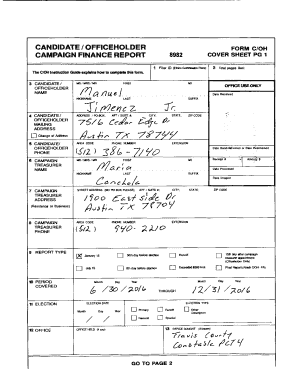 CANDIDATE / OFFICEHOLDER FORM C/OH
CAMPAIGN FINANCE REPORT 8982 COVER SHEET PG 1
The C/OH Instruction Guide explains how to complete this form.
1 Filer ID (Ethics Commission Filers) 2 Total pages filed:
3 CANDIDATE / OFFICEHOLDER NAME
MS / MRS / MR FIRST MI
Manuel
NICKNAME LAST SUFFIX
Jimenez Jr.
OFFICE USE ONLY
Date Received
4 CANDIDATE / OFFICEHOLDER MAILING ADDRESS
Change of Address
ADDRESS / PO BOX; APT / SUITE #; CITY; STATE; ZIP CODE
7516 Cedar Edge Dr
Austin TX 78744
5 CANDIDATE / OFFICEHOLDER PHONE
AREA CODE PHONE NUMBER EXTENSION
(512) 386-7140
Date Hand-delivered or Date Postmarked
6 CAMPAIGN TREASURER NAME
MS / MRS / MR FIRST MI
Maria
NICKNAME LAST SUFFIX
Canchola
Receipt # Amount $
Date Processed
Date Imaged
7 CAMPAIGN TREASURER ADDRESS
(Residence or Business)
STREET ADDRESS (NO PO BOX PLEASE); APT / SUITE #; CITY; STATE; ZIP CODE
1900 East Side Dr
Austin TX 78704
8 CAMPAIGN TREASURER PHONE
AREA CODE PHONE NUMBER EXTENSION
(512) 940-2210
9 REPORT TYPE
January 15 30th day before election Runoff 15th day after campaign treasurer appointment (Officeholder Only)
July 15 8th day before election Exceeded $500 limit Final Report (Attach C/OH - FR)
10 PERIOD COVERED
Month Day Year Month Day Year
6 / 30 / 2016 THROUGH 12 / 31 / 2016
11 ELECTION
ELECTION DATE ELECTION TYPE
Month Day Year
Primary Runoff Other Description
General Special
12 OFFICE
OFFICE HELD (if any)
13 OFFICE SOUGHT (if known)
Travis County
Constable PCT 4
GO TO PAGE 2